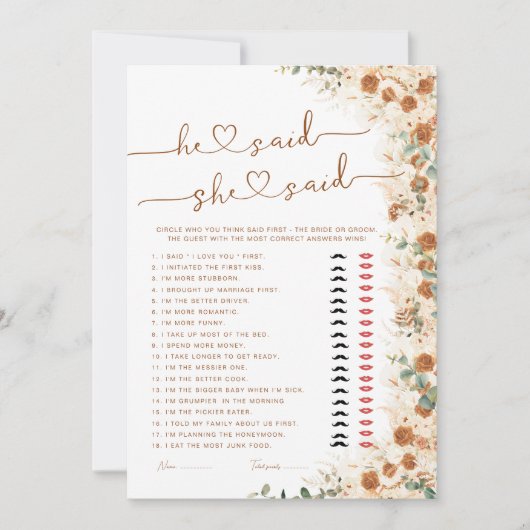 he said
she said
CIRCLE WHO YOU THINK SAID FIRST - THE BRIDE OR GROOM.
THE GUEST WITH THE MOST CORRECT ANSWERS WINS!
1. I SAID " I LOVE YOU " FIRST.
2. I INITIATED THE FIRST KISS.
3. I'M MORE STUBBORN.
4. I BROUGHT UP MARRIAGE FIRST.
5. I'M THE BETTER DRIVER.
6. I'M MORE ROMANTIC.
7. I'M MORE FUNNY.
8. I TAKE UP MOST OF THE BED.
9. I SPEND MORE MONEY.
10. I TAKE LONGER TO GET READY.
11. I'M THE MESSIER ONE.
12. I'M THE BETTER COOK.
13. I'M THE BIGGER BABY WHEN I'M SICK.
14. I'M GRUMPIER IN THE MORNING
15. I'M THE PICKIER EATER.
16. I TOLD MY FAMILY ABOUT US FIRST.
17. I'M PLANNING THE HONEYMOON.
18. I EAT THE MOST JUNK FOOD.
Name: ............ Total points: ..........